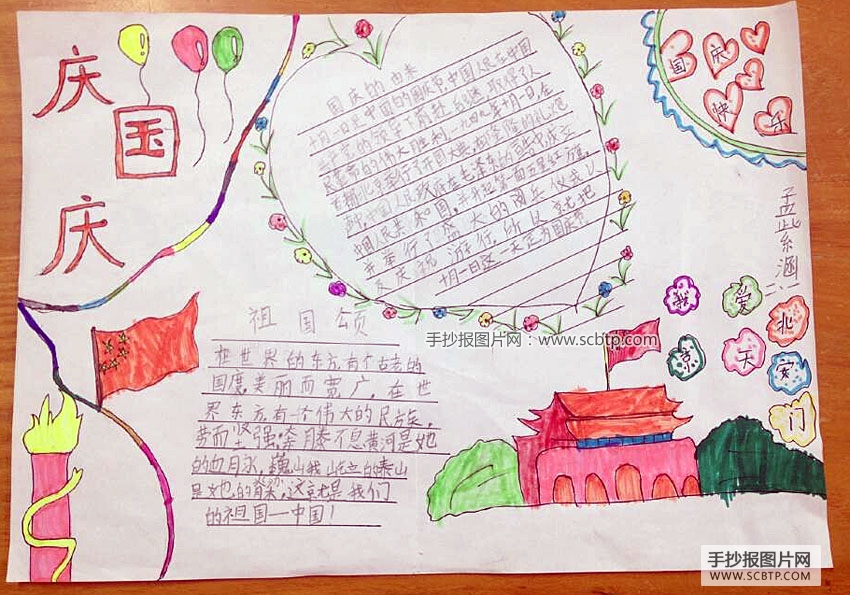 庆
国
庆
国庆的由来
十月一日是中国的国庆节,中国人民在中国
民革命的伟大胜利一九四九年十月一日在
中国人民共和国,并升起第一面五星红旗,
并举行了盛大的阅兵仪式以
及庆祝游行,所以就把
十月一日这一天定为国庆节
国庆
快乐
孟紫涵
我爱北
京天安
门
手抄报图片网:www.scbtp.com
祖国颂
在世界的东方有个古老的
国度,美丽而宽广,在世
界东方有一个伟大的民族,
劳而坚强,奔腾不息黄河是她
的血脉,巍山峨屹立的泰山
是她的脊梁,这就是我们
的祖国—中国!
手抄报图片网
WWW.SCBTP.COM